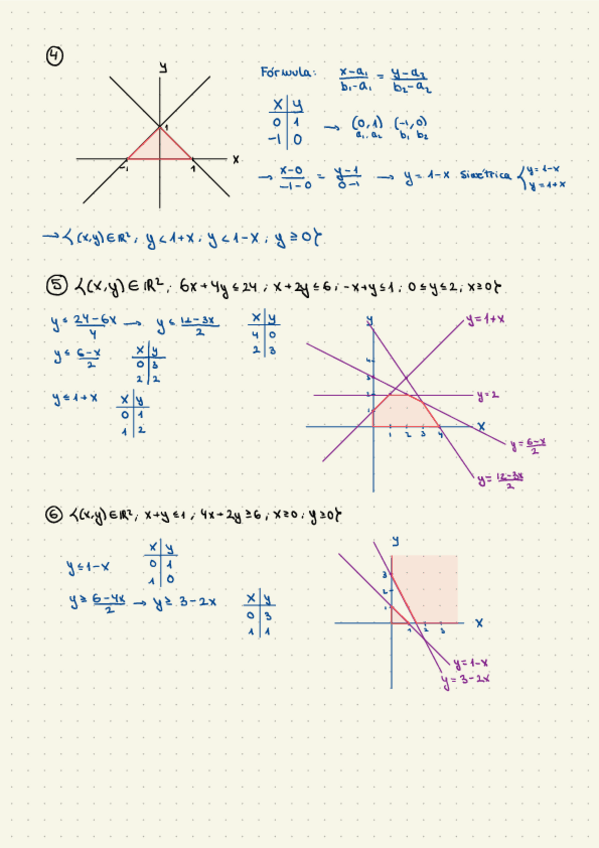 ④
y
1
-1
1
x
Fórmula: x-a₁/b₁-a₁ = y-a₂/b₂-a₂
x | y
0 | 1
-1 | 0
→ (0,1) (-1,0)
a₁ a₂ b₁ b₂
→ x-0/-1-0 = y-1/0-1 → y = 1-x Simétrica { y = 1-x
y = 1+x
→ {(x,y) ∈ ℝ²; y < 1+x; y < 1-x; y ≥ 0}
⑤ {(x,y) ∈ ℝ²; 6x+4y ≤ 24; x+2y ≤ 6; -x+y ≤ 1; 0 ≤ y ≤ 2; x ≥ 0}
y ≤ 24-6x/4 → y ≤ 12-3x/2
x | y
4 | 0
2 | 3
y ≤ 6-x/2
x | y
0 | 3
2 | 2
y ≤ 1+x
x | y
0 | 1
1 | 2
y
y = 1+x
4
3
2
1
y = 2
1 2 3 4
x
y = 6-x/2
y = 12-3x/2
⑥ {(x,y) ∈ ℝ²; x+y ≤ 1; 4x+2y ≥ 6; x ≥ 0; y ≥ 0}
y ≤ 1-x
x | y
0 | 1
1 | 0
y ≥ 6-4x/2 → y ≥ 3-2x
x | y
0 | 3
1 | 1
y
3
2
1
1 2 3
x
y = 1-x
y = 3-2x